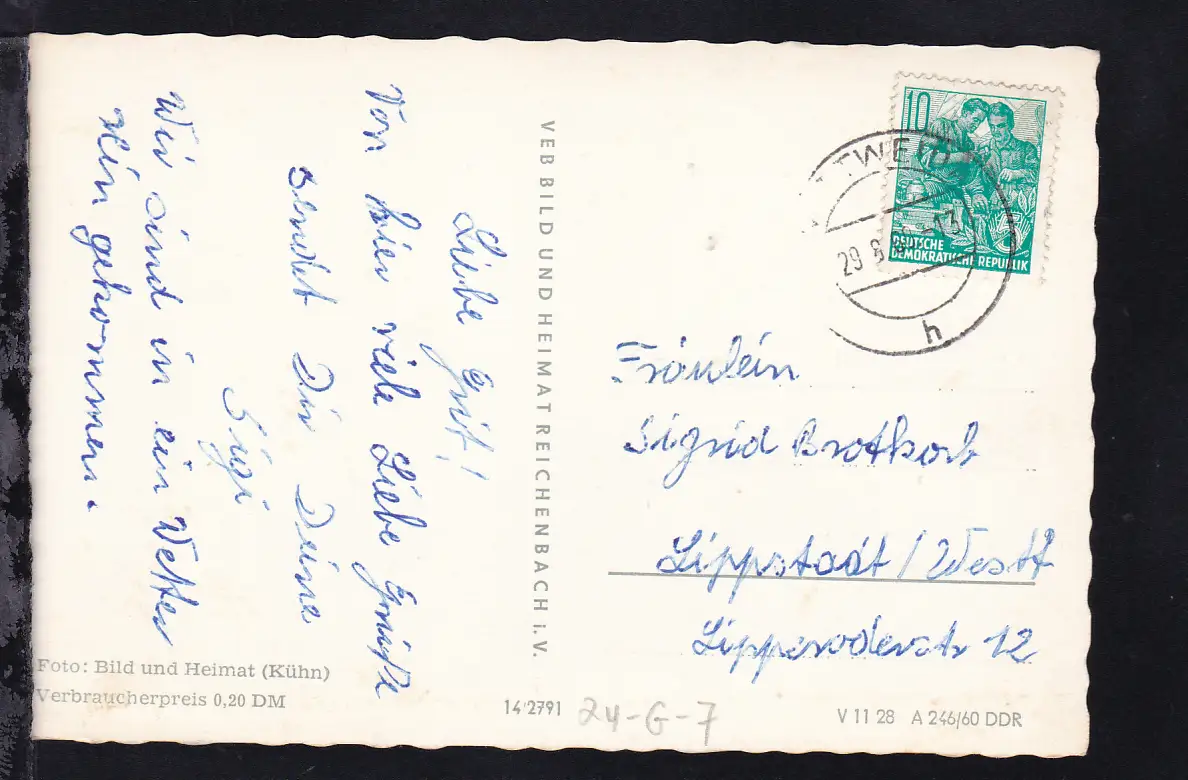 Liebe Grit!
Von hier viele Liebe Grüße
sendet Dir Deine
Sigi
Wir sind in ein Wetter
rein gekommen.
VEB BILD UND HEIMAT REICHENBACH i. V.
10
DEUTSCHE
DEMOKRATISCHE REPUBLIK
TWE
29 6 13
h
Fräulein
Sigrid
Lippstadt / Westf
Lipperoderstr 12
Foto: Bild und Heimat (Kühn)
Verbraucherpreis 0,20 DM
14/2791
24-G-7
V 11 28 A 246/60 DDR